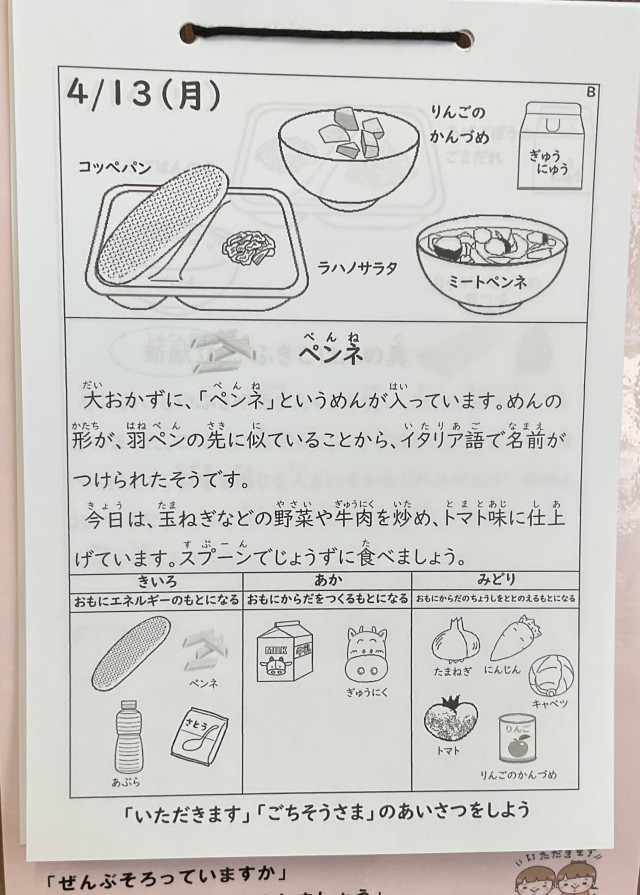 4/13(月)
B
りんごの
かんづめ
ぎゅう
にゅう
コッペパン
ラハノサラタ
ミートペンネ
ぺんね
ペンネ
だい ぺんね はい
大おかずに、「ペンネ」というめんが入っています。めんの
かたち はねぺん さき に いたりあご なまえ
形が、羽ペンの先に似ていることから、イタリア語で名前が
つけられたそうです。
きょう たま やさい ぎゅうにく いた とまとあじ しあ
今日は、玉ねぎなどの野菜や牛肉を炒め、トマト味に仕上
すぷーん た
げています。スプーンでじょうずに食べましょう。
きいろ あか みどり
おもにエネルギーのもとになる おもにからだをつくるもとになる おもにからだのちょうしをととのえるもとになる
ペンネ
さとう
あぶら
MILK
ぎゅうにく
たまねぎ
にんじん
キャベツ
トマト
りんご
りんごのかんづめ
「いただきます」「ごちそうさま」のあいさつをしよう
いただきます
「ぜんぶそろっていますか」